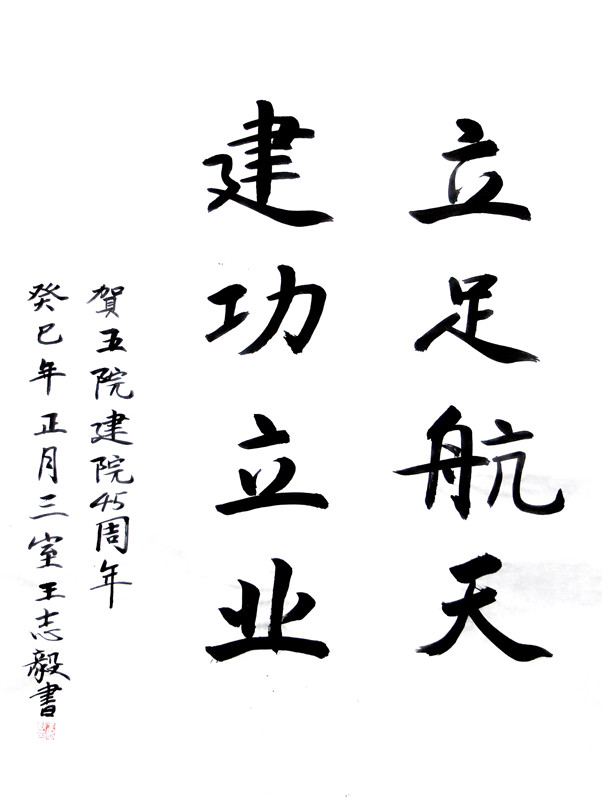 立足航天
建功立业
賀五院建院45周年
癸巳年正月三室王志毅書